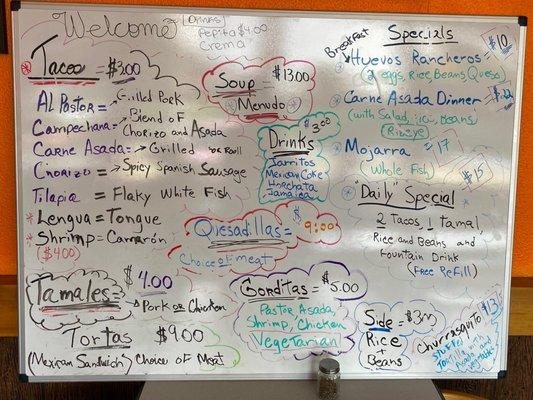 Welcome
Drinks
Pepita $4.00
Crema
* Tacos = $3.00
Al Pastor = → Grilled Pork
Campechana = → Blend of
Chorizo and Asada
Carne Asada = → Grilled
Chorizo = → Spicy Spanish Sausage
Tilapia = Flaky White Fish
* Lengua = Tongue
* Shrimp = Camarón
($4.00)
Tamales = $4.00
→ Pork or Chicken
Tortas $9.00
(Mexican Sandwich) Choice of Meat
Soup = $13.00
* Menudo *
Drinks $3.00
Jarritos
Mexican Coke
Horchata
Jamaica
Qiesadillas = $9:00
Choice of meat
Gorditas = $5.00
Pastor Asada,
Shrimp, Chicken
Vegetarian
Specials
Breakfast
* Huevos Rancheros $10
(2 eggs, Rice, Beans, Queso)
* Carne Asada Dinner =
(with Salad, rice, beans)
(Ribeye)
* Mojarra = 17
(Whole Fish)
* "Daily" Special $15
2 Tacos, 1 Tamal,
Rice and Beans and
Fountain Drink
(Free Refill)
Side =
Rice
+
Beans
Churrasquito $13
Stuffed
Tortilla with
Asada and
vegetables